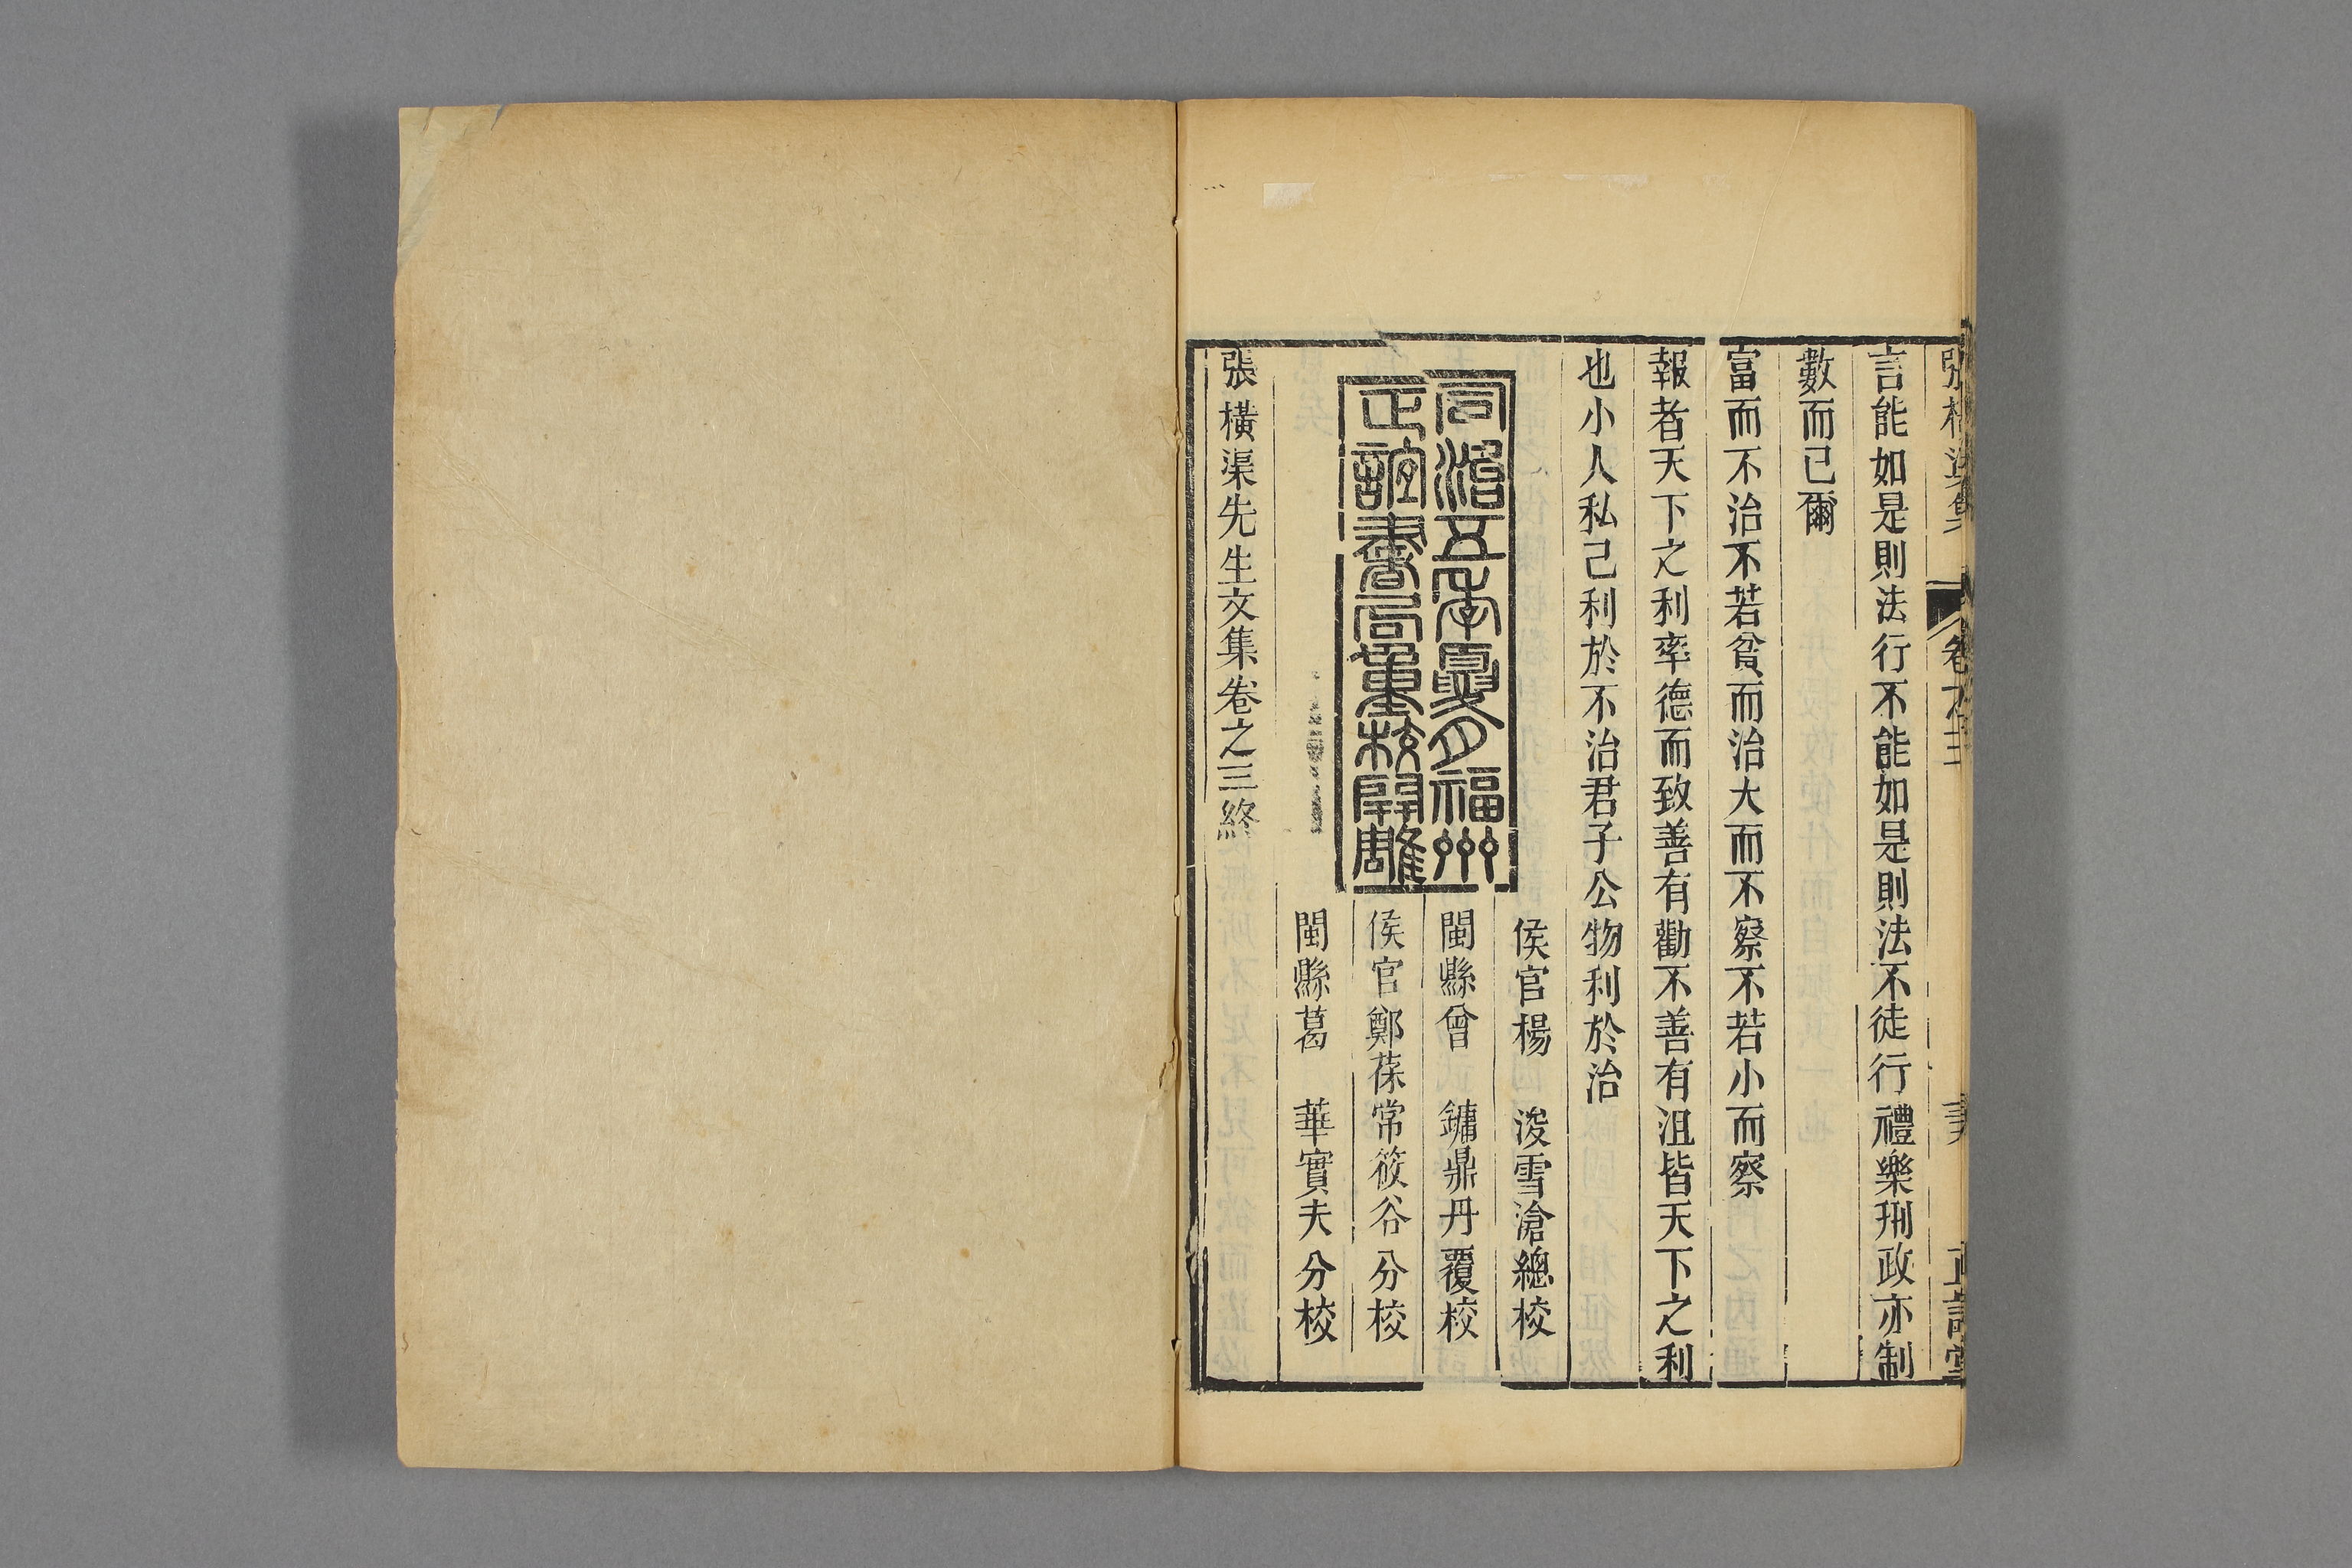 言能如是則法行不能如是則法不徒行禮樂刑政亦制
數而已爾
富而不治不若貧而治大而不察不若小而察
報者天下之利率德而致善有勸不善有沮皆天下之利
也小人私己利於不治君子公物利於治
同治五年夏月福州
正誼書局重校開雕
侯官楊 浚雪滄總校
閩縣曾 鏞鼎丹覆校
侯官鄭葆常筱谷分校
閩縣葛 華實夫分校
張橫渠先生文集卷之三終